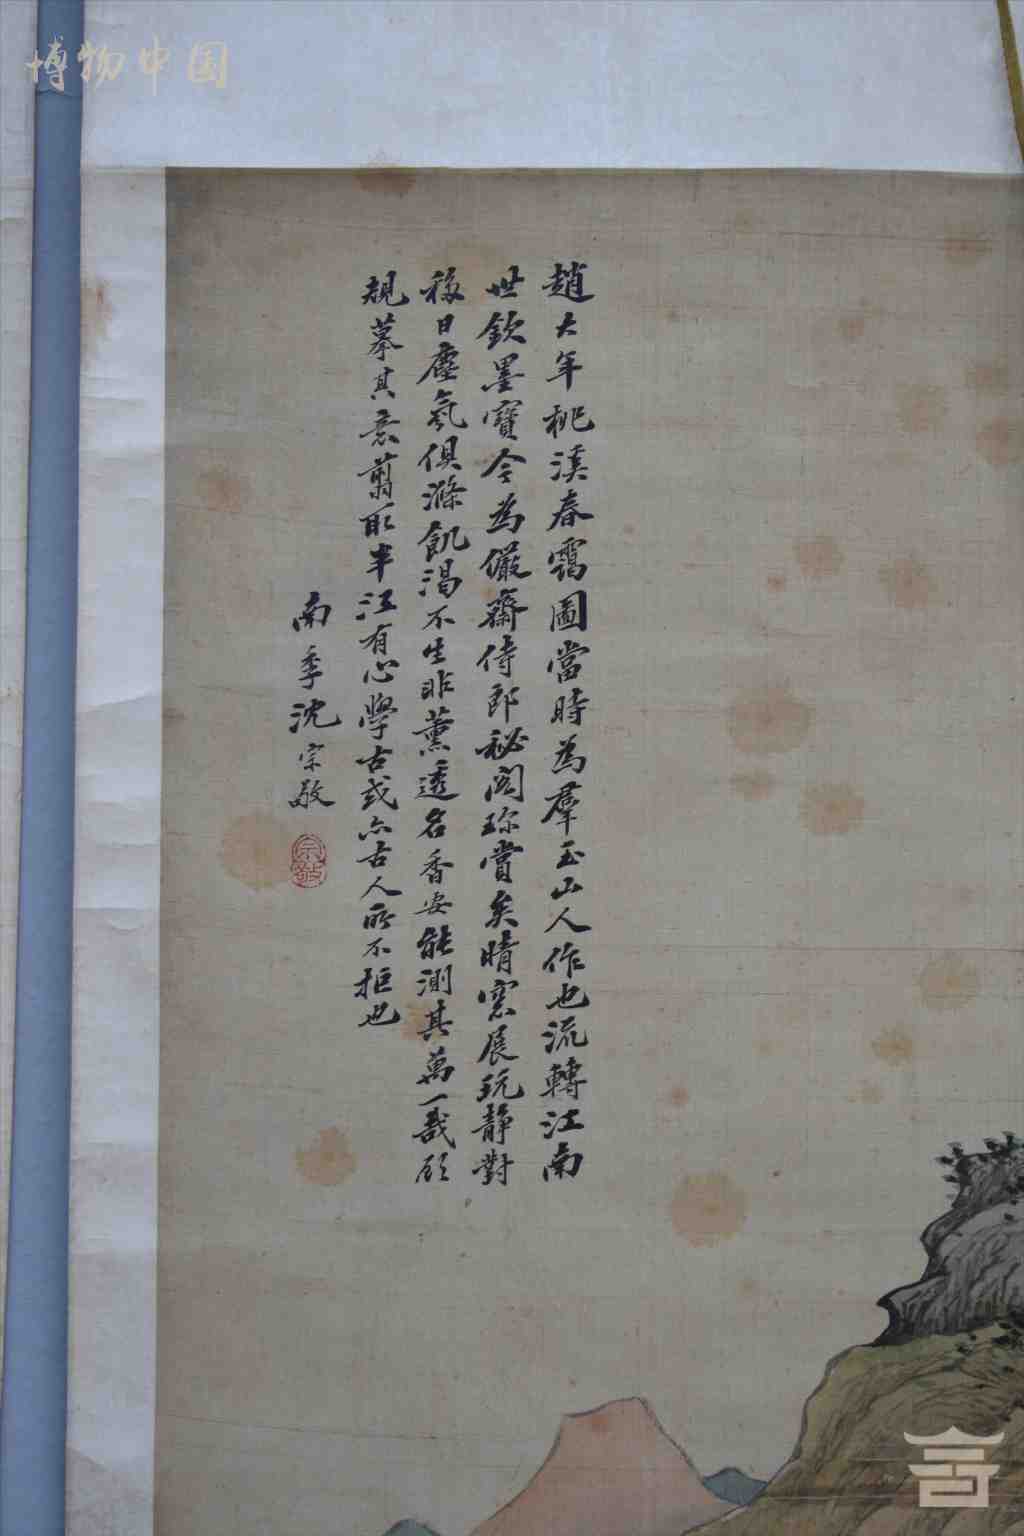 博物中国
趙大年桃溪春靄圖當時為羣玉山人作也流轉江南
世欽墨寶今為儼齋侍郎秘閣珎賞矣晴窓展玩静對
移日塵氛俱滌飢渴不生非薰透名香安能測其萬一哉顧
規摹其意翦取半江有心學古或亦古人所不拒也
南季沈宗敬
宗敬